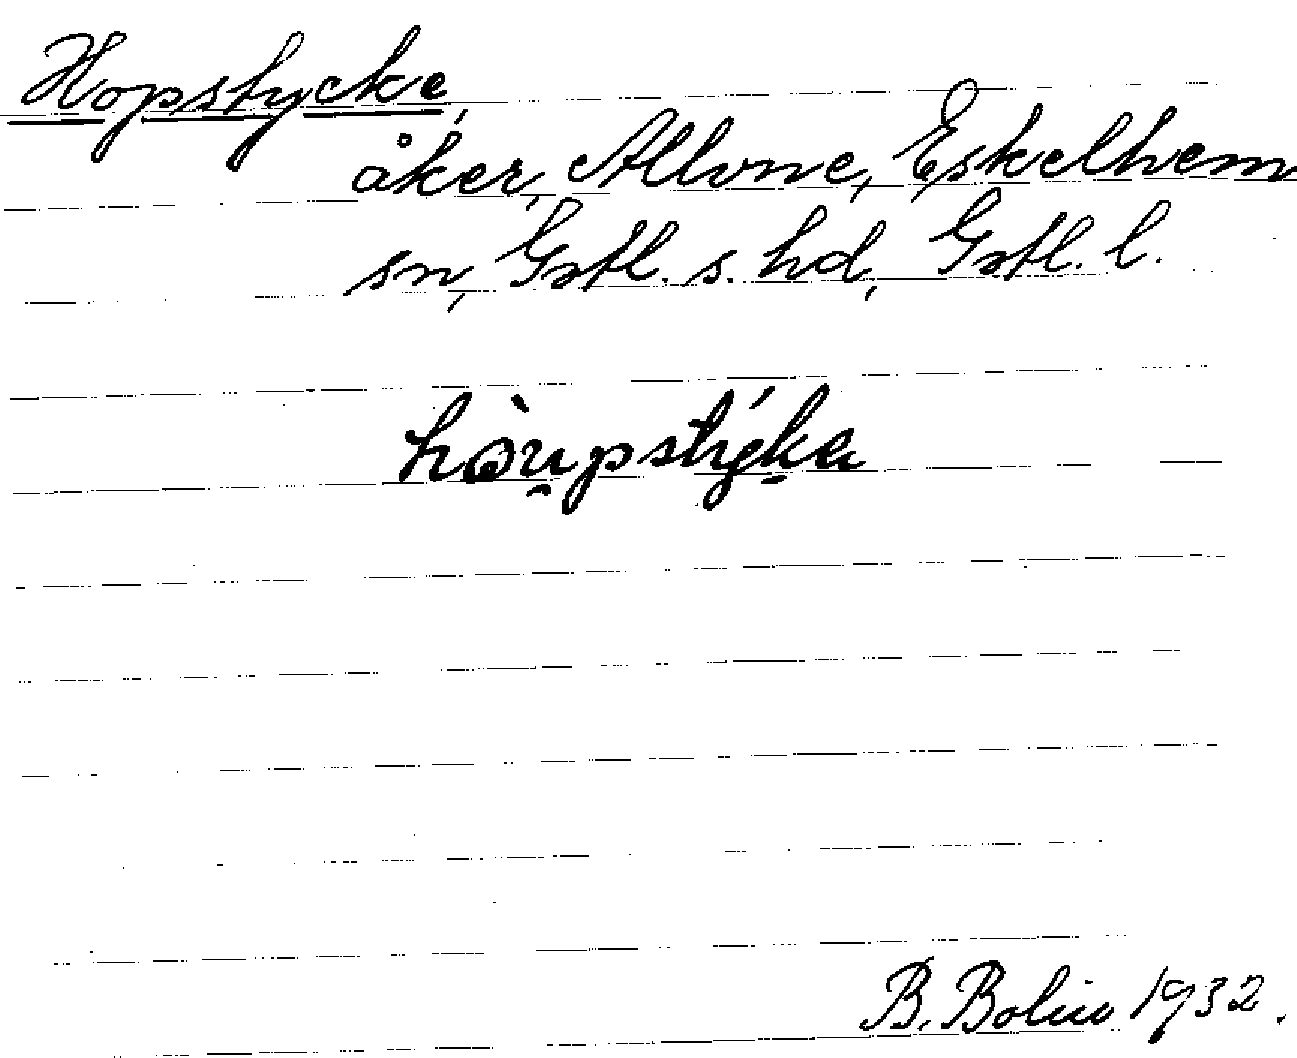 Hopstycke,
åker, Allvne, Eskelhem
sn, Gotl. s. hd, Gotl. l.
B. Bolin 1932.